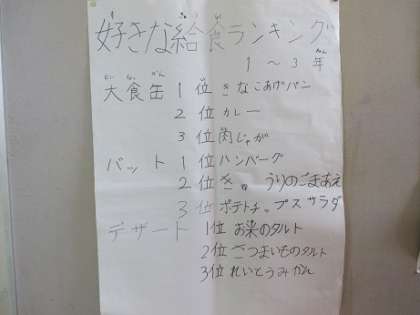 好きな給食ランキング
1～3年
大食缶 1位 きなこあげパン
2位 カレー
3位 肉じゃが
バット 1位 ハンバーグ
2位 きゅうりのごまあえ
3位 ポテトチップスサラダ
デザート 1位 お茶のタルト
2位 さつまいものタルト
3位 れいとうみかん